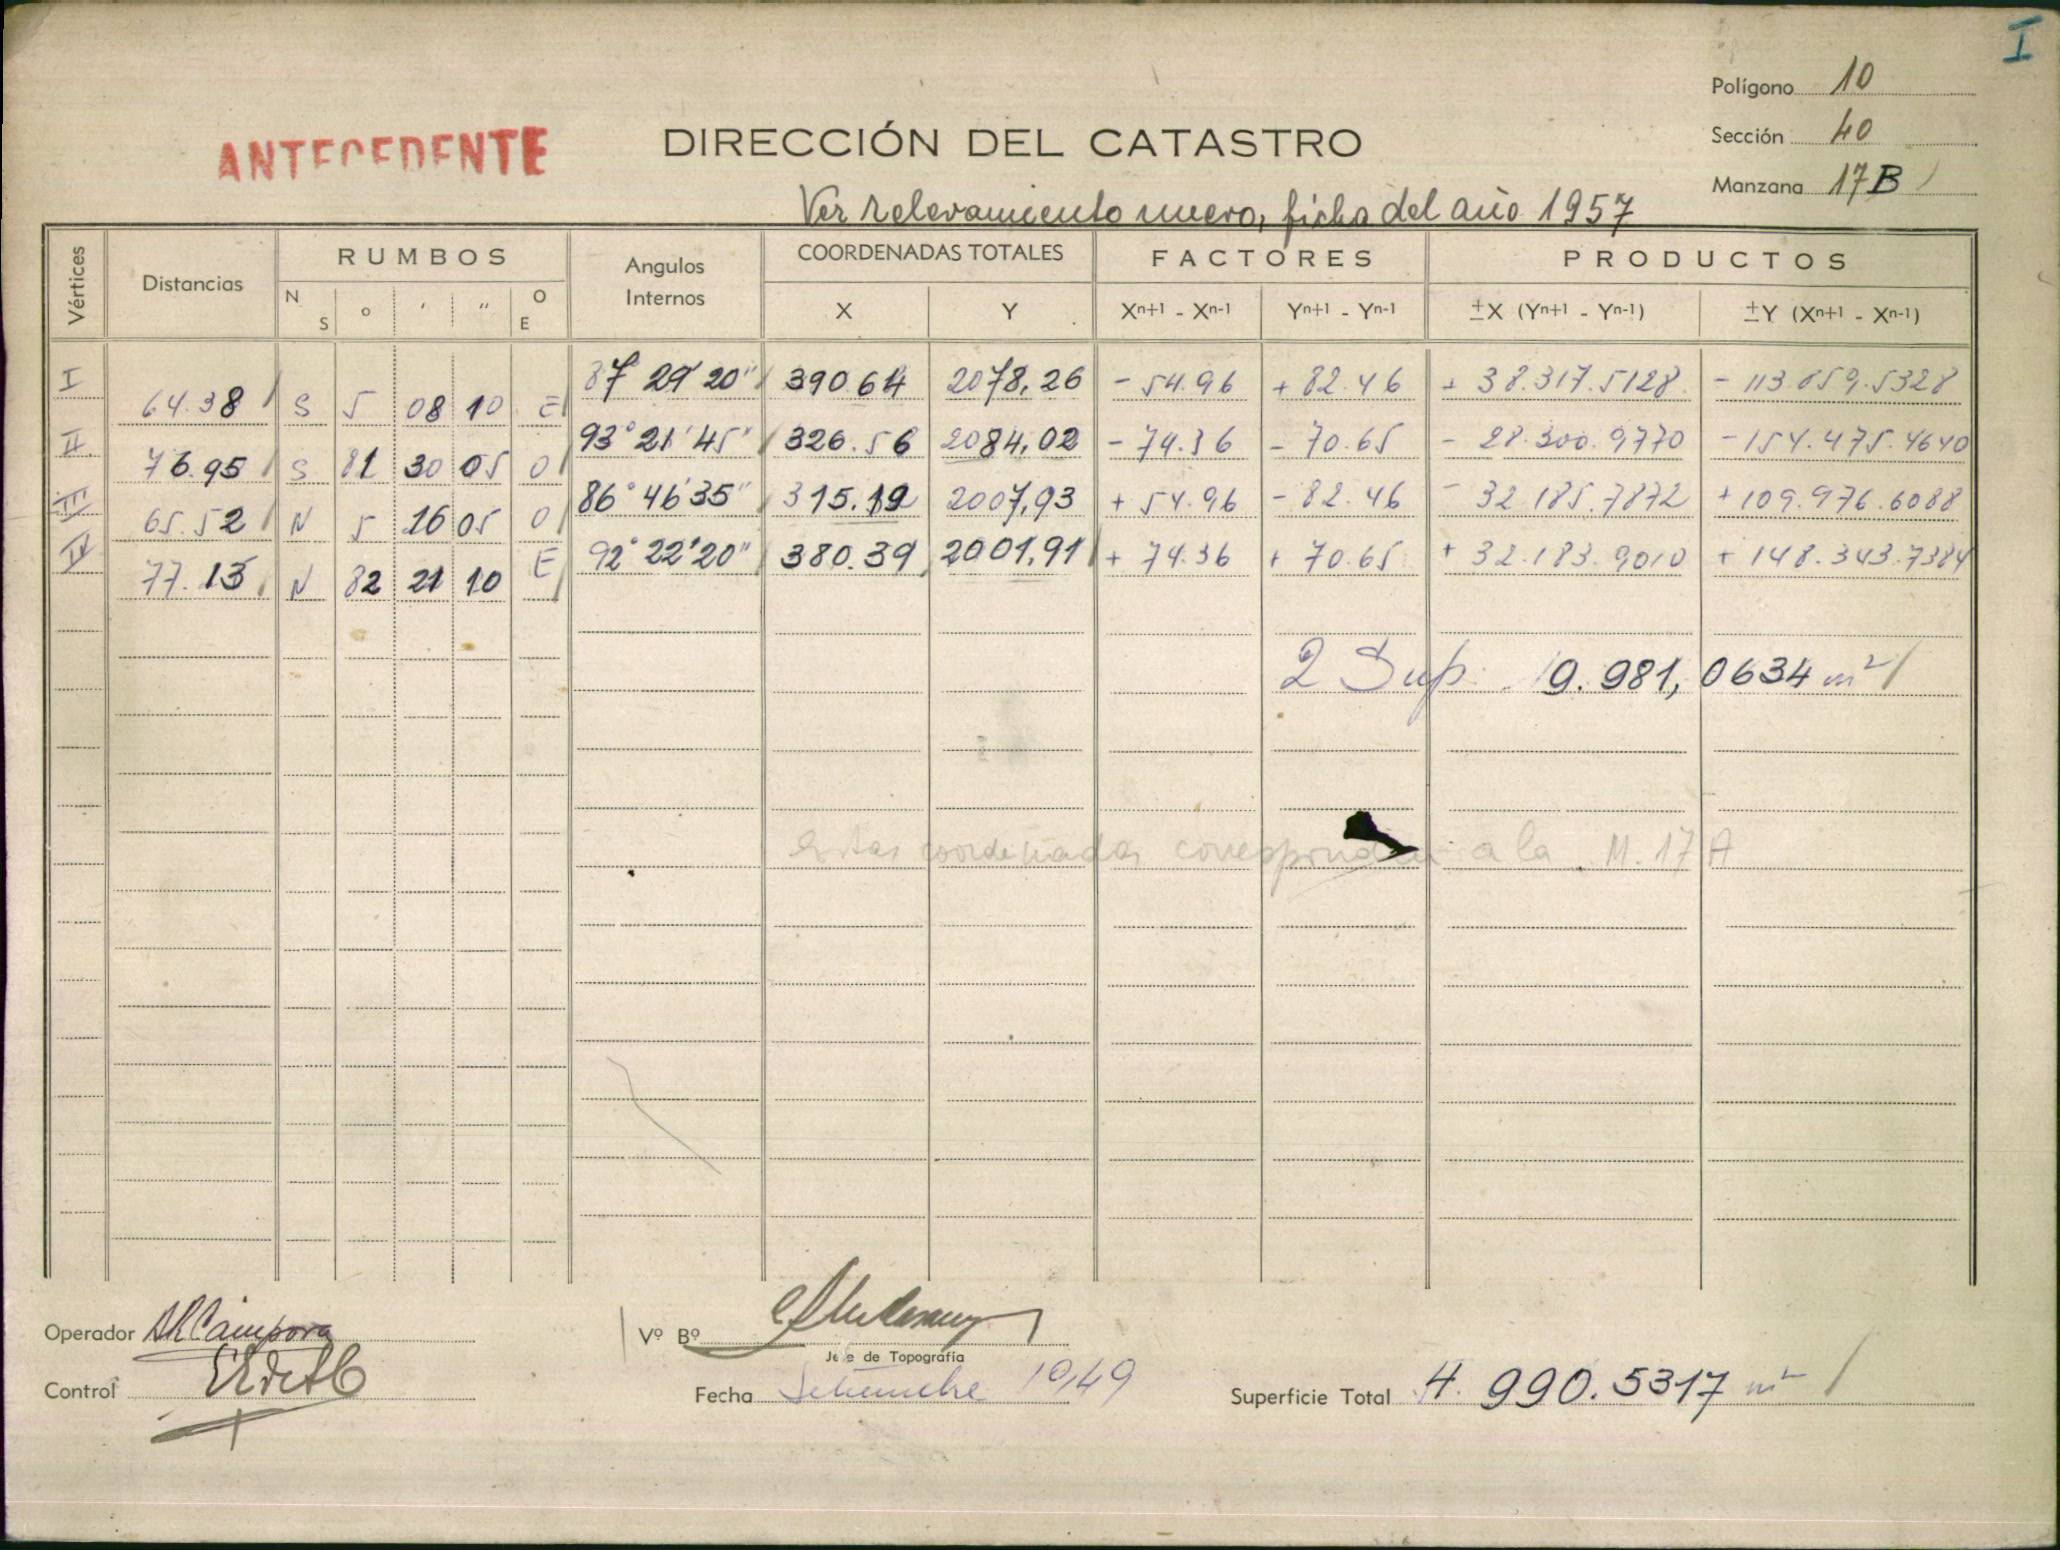 I
Polígono 10
ANTECEDENTE
DIRECCIÓN DEL CATASTRO
Sección 40
Manzana 17B
Ver relevamiento nuevo, ficha del año 1957
Vértices Distancias RUMBOS Angulos Internos COORDENADAS TOTALES FACTORES PRODUCTOS
N S º ' " O E X Y Xn+1 - Xn-1 Yn+1 - Yn-1 ±X (Yn+1 - Yn-1) ±Y (Xn+1 - Xn-1)
I 87° 29' 20" 390.64 2078,26 - 54.96 + 82.46 + 38.317.5128 - 113.859.5328
64.38 S 5 08 10 E
II 93° 21' 45" 326.56 2084,02 - 74.36 - 70.65 - 28.300.9770 - 154.475.4640
76.95 S 81 30 05 O
III 86° 46' 35" 315.19 2007,93 + 54.96 - 82.46 - 32.185.7872 + 109.976.6088
65.52 N 5 16 05 O
IV 92° 22' 20" 380.39 2001,91 + 74.36 + 70.65 + 32.183.9010 + 148.343.7384
77.13 N 82 21 10 E
2 Sup. 9.981,0634 m²
Estas coordenadas corresponden a la M. 17A
Operador
Vº Bº
Jefe de Topografía
Control
Fecha Setiembre 1949
Superficie Total 4.990.5317 m²